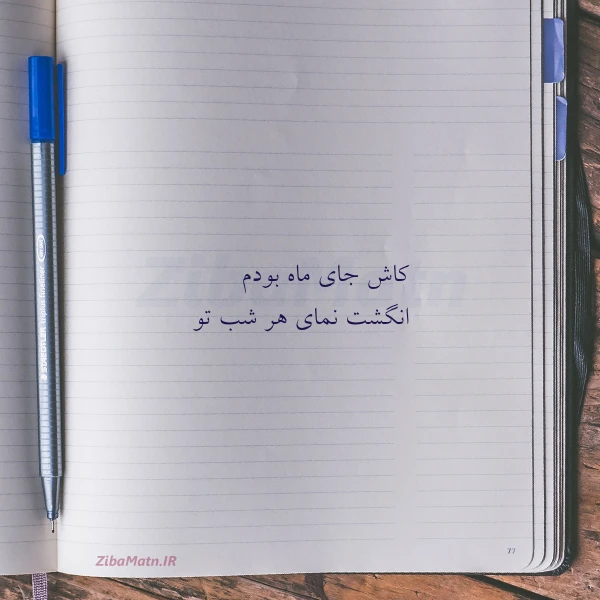 کاش جای ماه بودم
انگشت نمای هر شب تو
ZibaMatn
77
ZibaMatn.IR